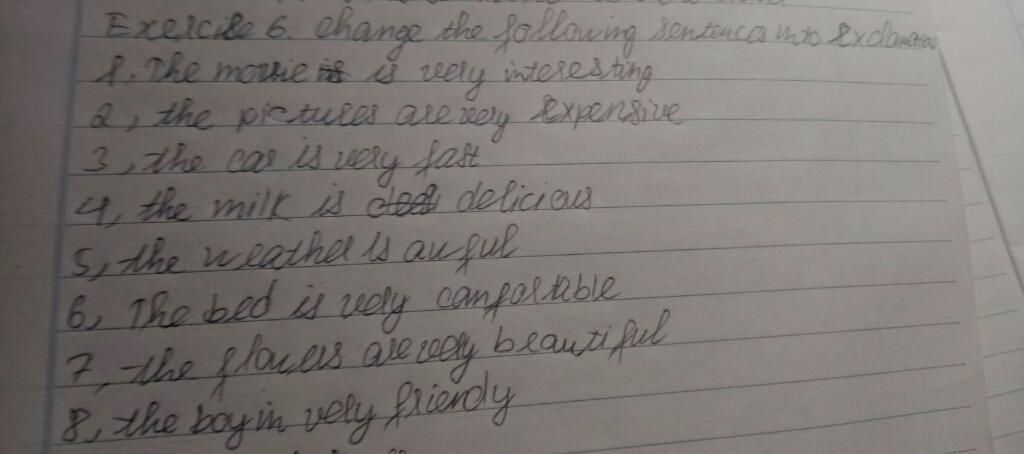 Exercise 6. Change the following sentences into Exclamation
1. The movie is very interesting
2, the pictures are very Expensive
3, the car is very fast
4, the milk is delicious
5, the weather is awful
6, The bed is very comfortable
7, the flowers are very beautiful
8, the boy in very friendy